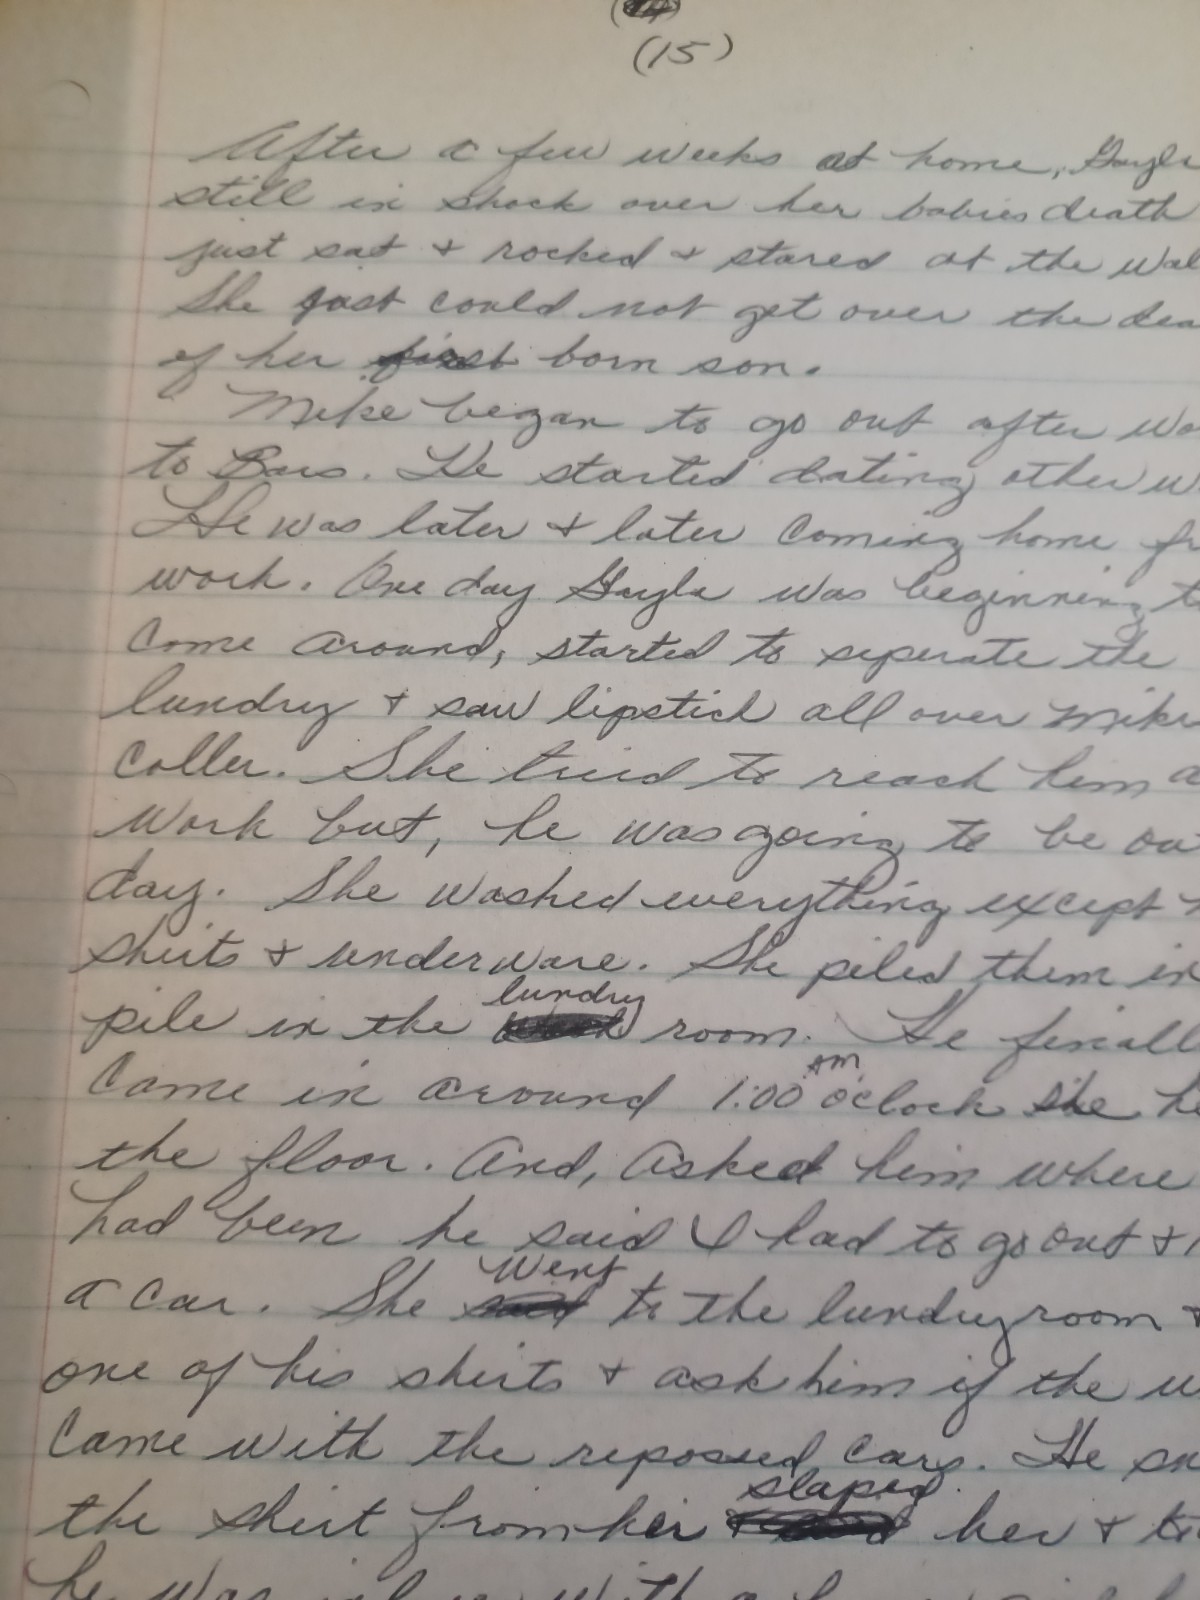 (15)
After a few weeks at home, Gayla
still in shock over her babies death
just sat & rocked & stared at the
She just could not get over the
of her first born son.
Mike began to go out after
to Bars. He started dating other
He was later & later coming home
work. One day Gayla was beginning
come around, started to seperate the
lundry & saw lipstick all over
coller. She tried to reach him
work but, he was going to be
day. She washed everything except
shirts & underware. She piled them in
pile in the lundry room. He
came in around 1:00 AM o'clock she
the floor. And, asked him where
had been he said I had to go out &
a car. She went to the lundry room &
one of his shirts & ask him if the
came with the repossed cars. He
the shirt from her slaped her &
he was with a